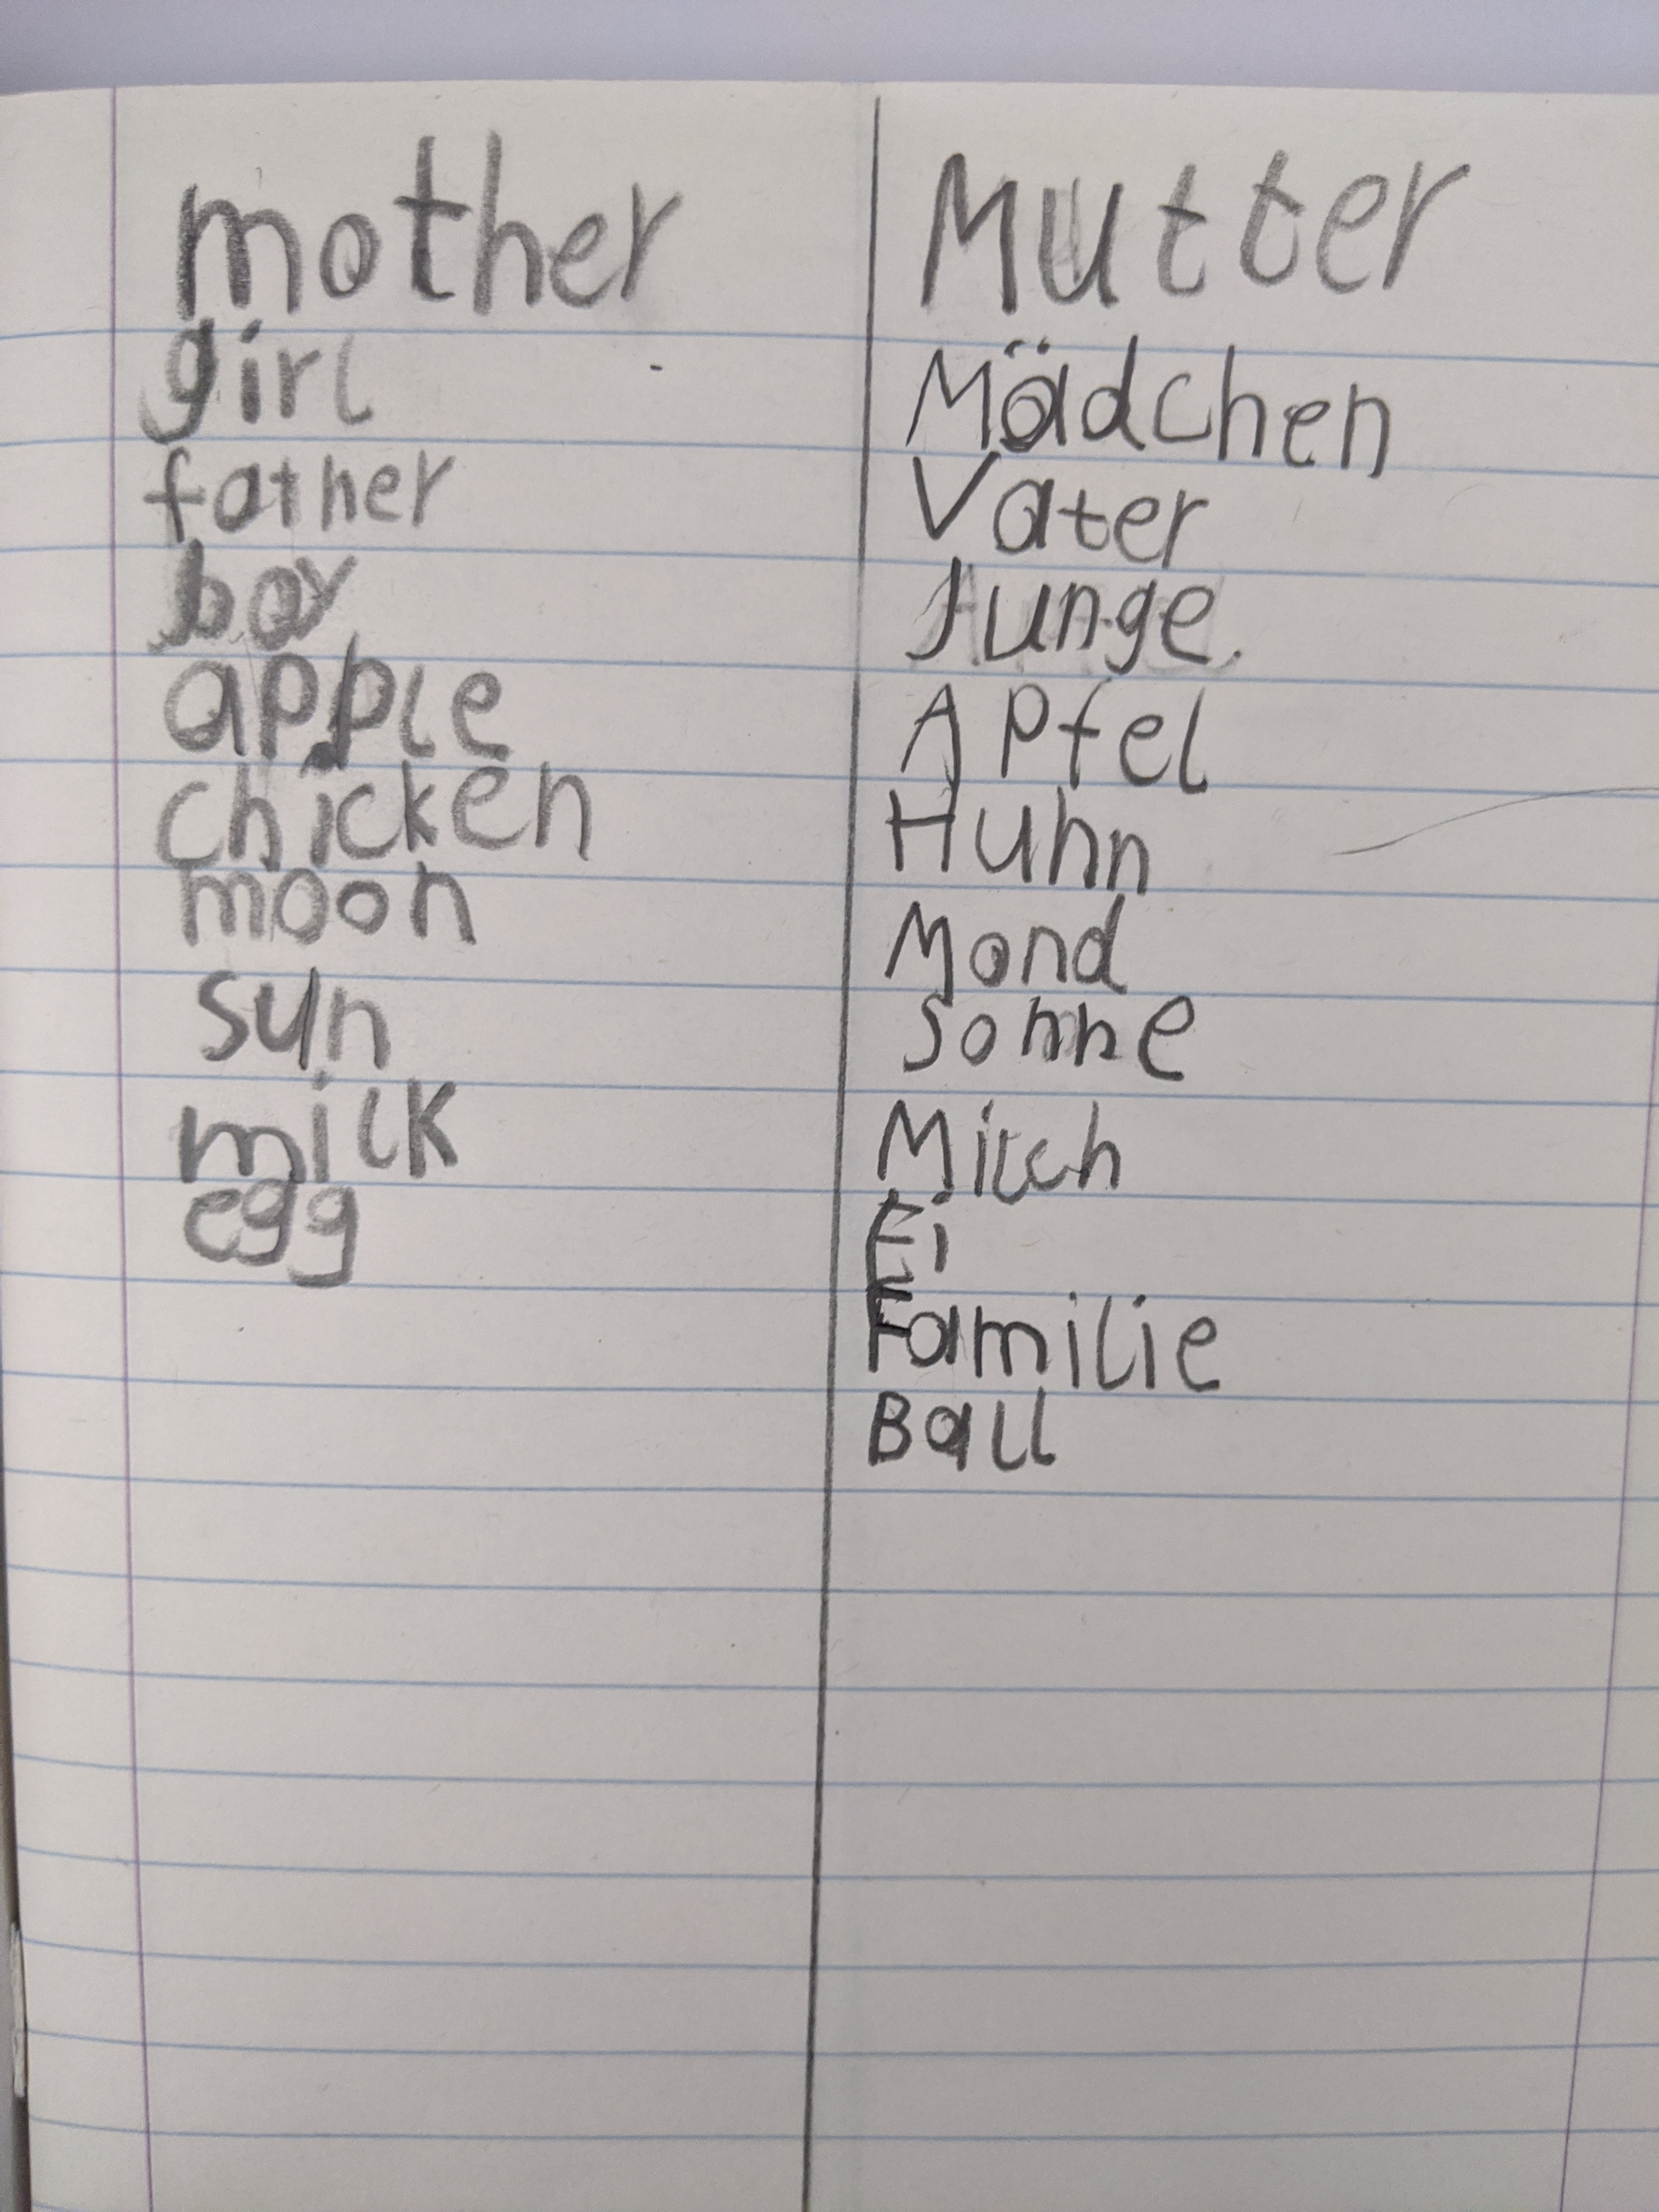 mother Mutter
girl Mädchen
father Vater
boy Junge.
apple Apfel
chicken Huhn
moon Mond
sun Sonne
milk Milch
egg Ei
Familie
Ball